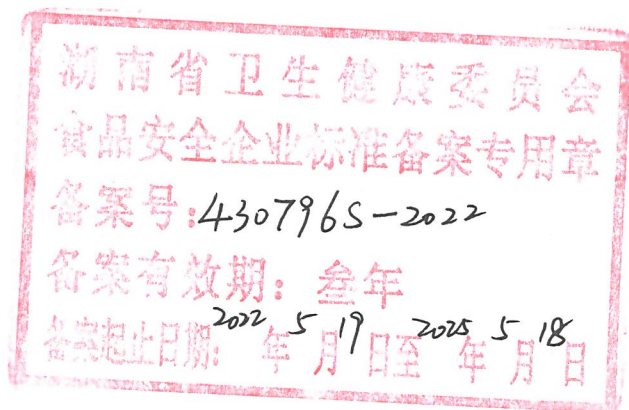 湖南省卫生健康委员会
食品安全企业标准备案专用章
备案号:430796S-2022
备案有效期：叁年
备案起止日期:2022年5月19日至2025年5月18日